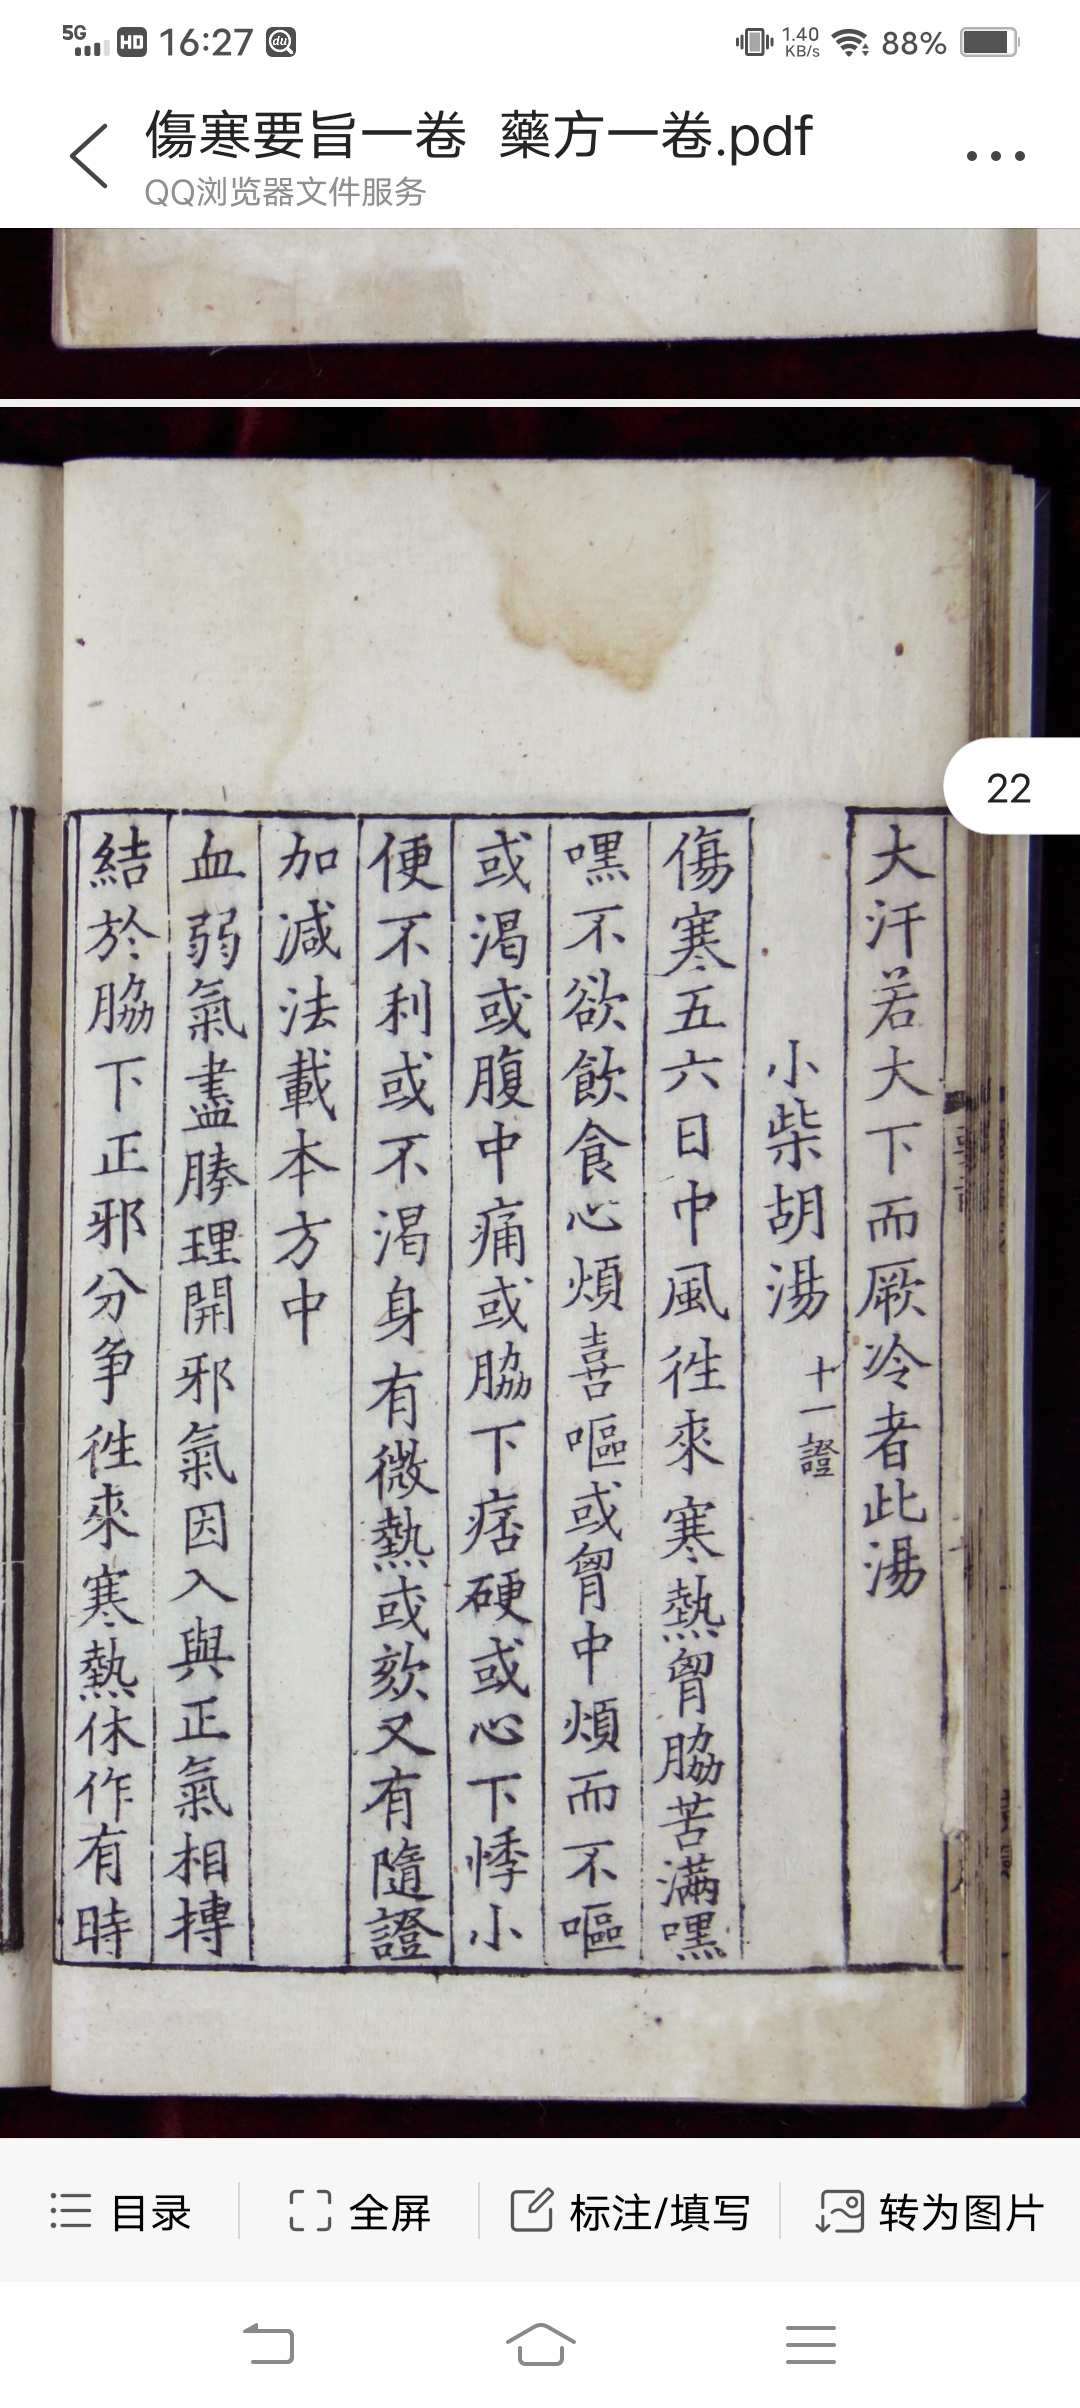 5G HD 16:27 du 1.40 KB/s 88%
傷寒要旨一卷 藥方一卷.pdf
QQ浏览器文件服务
22
大汗若大下而厥冷者此湯
小柴胡湯 十一證
傷寒五六日中風徃來寒熱胷脇苦滿嘿
嘿不欲飲食心煩喜嘔或胷中煩而不嘔
或渴或腹中痛或脇下痞硬或心下悸小
便不利或不渴身有微熱或欬又有隨證
加減法載本方中
血弱氣盡腠理開邪氣因入與正氣相摶
結於脇下正邪分争徃來寒熱休作有時
目录 全屏 标注/填写 转为图片